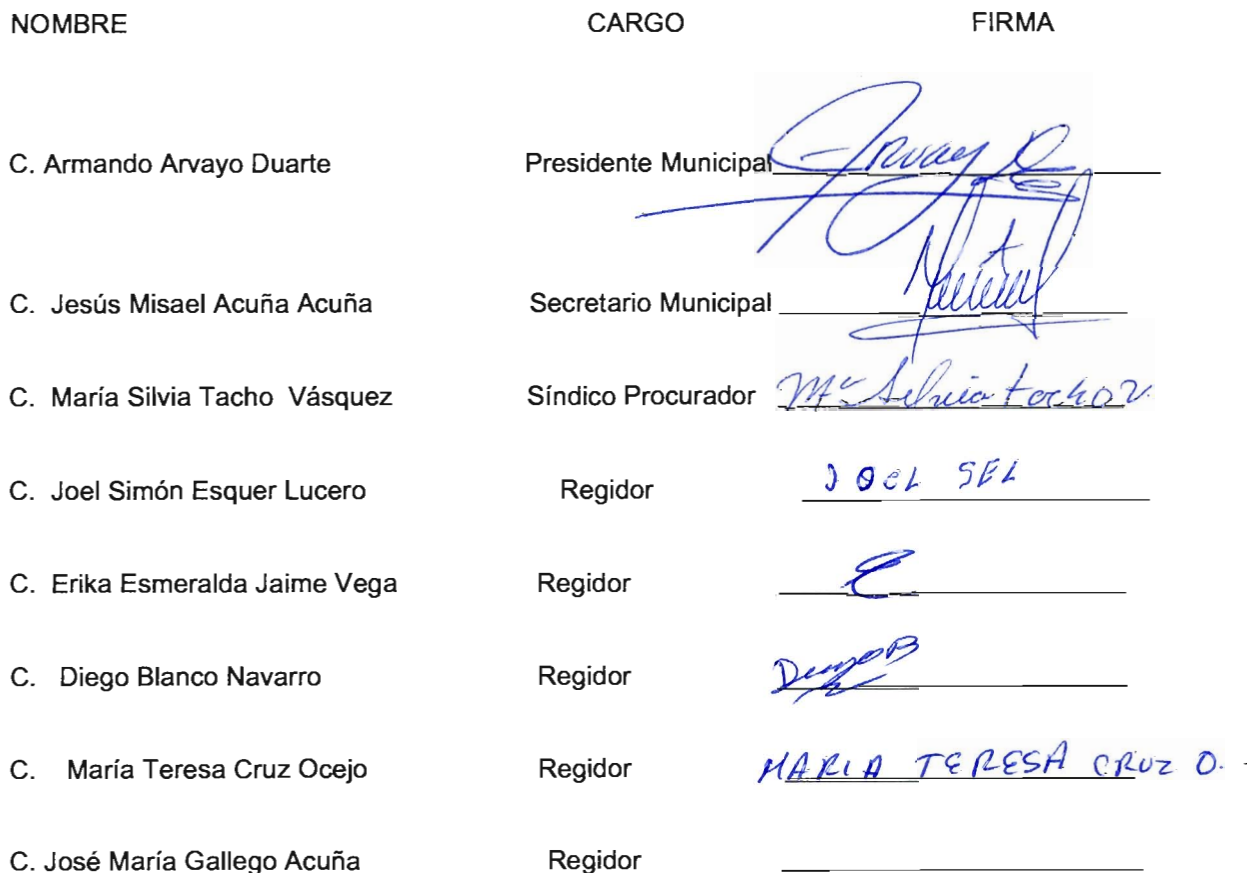 NOMBRE CARGO FIRMA
C. Armando Arvayo Duarte Presidente Municipal Arvayo D
C. Jesús Misael Acuña Acuña Secretario Municipal
C. María Silvia Tacho Vásquez Síndico Procurador Ma Silvia Tacho V.
C. Joel Simón Esquer Lucero Regidor JOEL SEL
C. Erika Esmeralda Jaime Vega Regidor E
C. Diego Blanco Navarro Regidor Diego B
C. María Teresa Cruz Ocejo Regidor MARIA TERESA CRUZ O.
C. José María Gallego Acuña Regidor